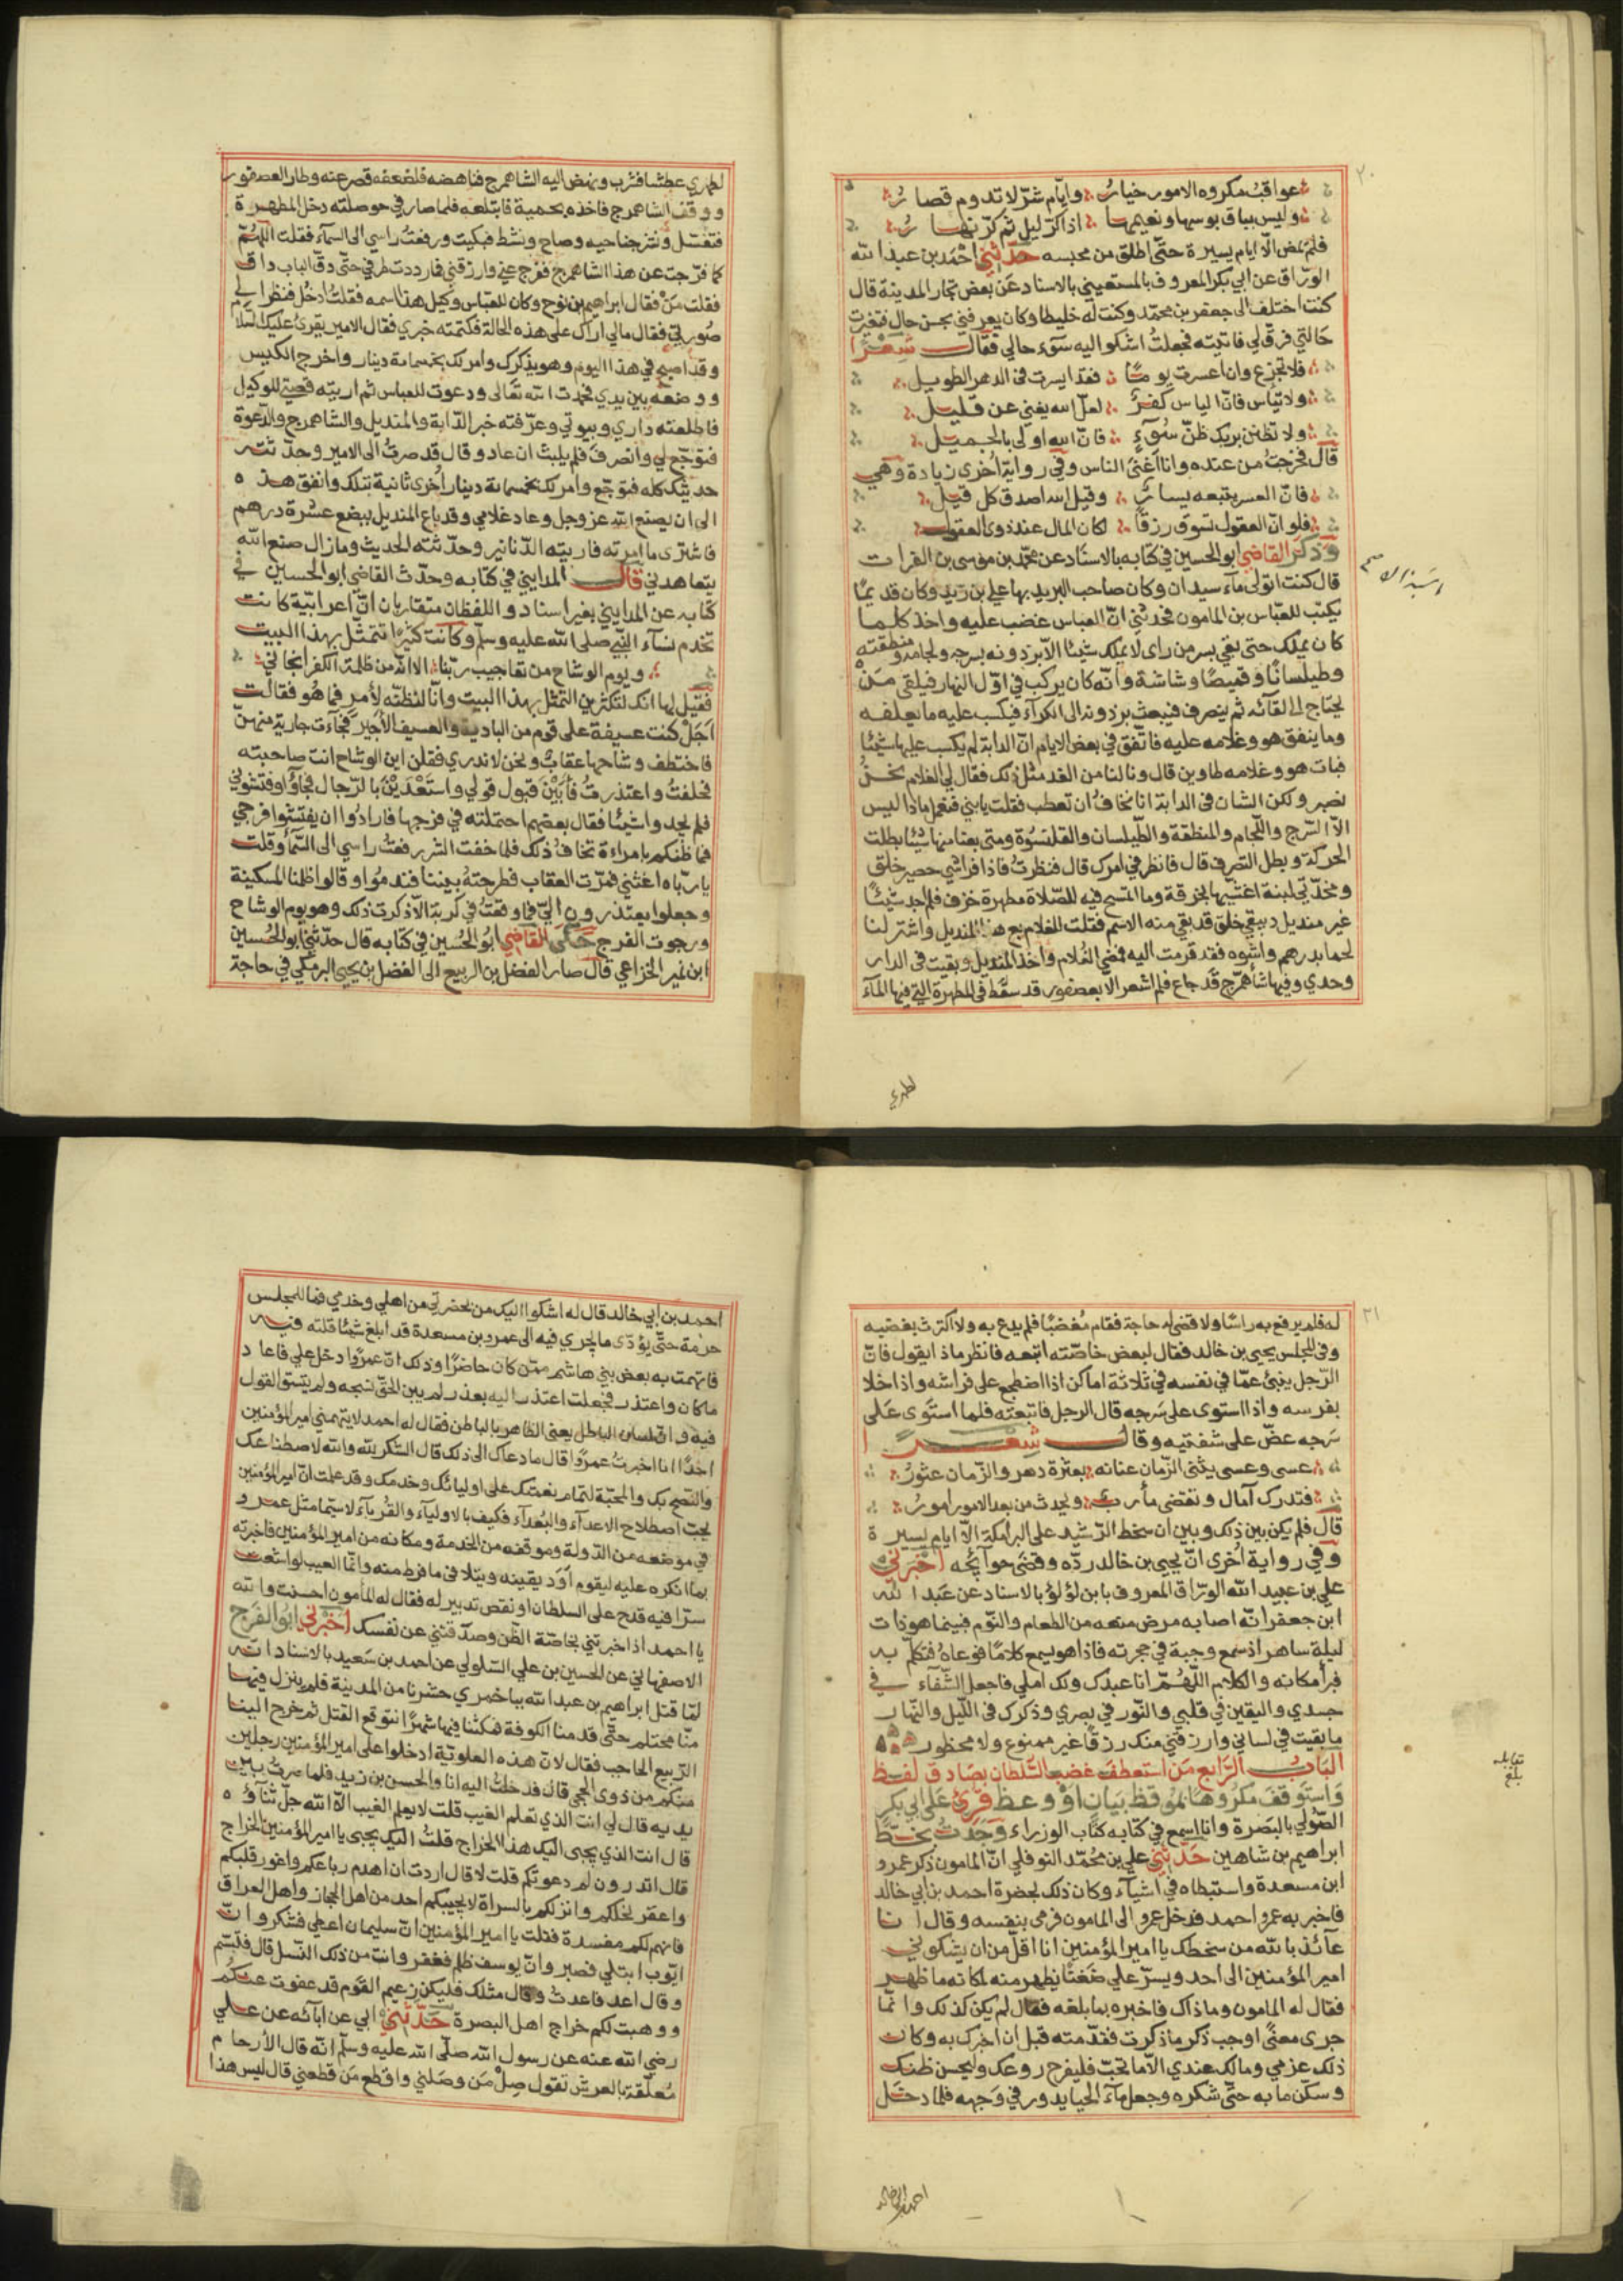 ٢٠
عواقب مكروه الامور خيار وايام شرّ لا تدوم قصار
وليس بباق بوسها ونعيمها اذا كرّ ليل ثم كرّ نهار
فلم تمض الّا ايام يسيرة حتّى اطلق من محبسه حدّثني احمد بن عبد الله
الورّاق عن ابي بكر المعروف بالمستعيني بالاسناد عن بعض تجار المدينة قال
كنت اختلف الى جعفر بن محمّد وكنت له خليطا وكان يعرفني بحسن حال فتغيرت
حالتي فرق لي فاتيته فجعلت اشكو اليه سوء حالي فقال شعرًا
فلا تجزع وان اعسرت يومًا فقد ايسرت في الدهر الطويل
ولا تياس فانّ الياس كفر لعلّ الله يغني عن قليل
ولا تظنن بربك ظنّ سوءٍ فانّ الله اولى بالجميل
قال فخرجت من عنده وانا اغنى الناس وفي رواية اخرى زيادة وهي
فانّ العسر يتبعه يسارٌ وقيل الله اصدق كل قيل
فلو انّ العقول تسوق رزقًا لكان المال عند ذوي العقول
وذكر القاضي ابو الحسين في كتابه بالاسناد عن محمّد بن موسى بن الفرات
قال كنت اتولى ماء سيدان وكان صاحب البريد بها علي بن زيد وكان قديمًا
يكتب للعبّاس بن المامون فحدثني انّ العباس غضب عليه واخذ كلما
كان يملك حتى بقي بسر من راى لا يملك شيئًا الّا برذونه بسرجه ولجامه ومنطقته
وطيلسانًا وقميصًا وشاشة وانّه كان يركب في اوّل النهار فيلقى من
يحتاج الى لقائه ثم ينصرف فيبعث برذونه الى الكراء فيكسب عليه ما يعلفه
وما ينفق هو وغلامه عليه فاتّفق في بعض الايام انّ الدابة لم يكسب عليها شيئًا
فبات هو وغلامه طاوين قال ونالنا من الغد مثل ذلك فقال لي الغلام نحن
نصبر ولكن الشان في الدابة انا نخاف ان تعطب فقلت يا بني فنعمل ماذا ليس
الّا السّرج واللّجام والمنطقة والطّيلسان والقلنسوة ومتى بعنا منها شيئًا بطلت
الحركة وبطل التصرف قال فانظر في امرك قال فنظرت فاذا فراشي حصير خلق
ومخدّتي لبنة اغشّيها بخرقة وما اتمسح فيه للصّلاة مطهرة خزف فلم اجد شيئًا
غير منديل دبيقي خلق قد بقي منه الاسم فقلت للغلام بع هذا المنديل واشتر لنا
لحما بدرهم واشوه فقد قرمت اليه فمضى الغلام واخذ المنديل وبقيت في الدار
وحدي وفيها شاهمرّج قد جاع فلم اشعر الّا بعصفور قد سقط في المطهرة التي فيها الماء
لطهري
لطهري عطشا فشرب ونهض اليه الشاهمرج فناهضه فلضعفه قصر عنه وطار العصفور
ووقف الشاهمرج فاخذه بحمية فابتلعه فلما صار في حوصلته دخل المطهرة
فتغسّل ونثر جناحيه وصاح ونشط فبكيت ورفعت راسي الى السماء فقلت اللهمّ
كما فرّجت عن هذا الشاهمرج ففرج عني وارزقني فما رددت طرفي حتّى دقّ الباب داق
فقلت من فقال ابراهيم بن نوح وكان للعبّاس وكيل هذا اسمه فقلت ادخل فنظر الى
صورتي فقال ما لي اراك على هذه الحالة فكتمته خبري فقال الامير يقرئ عليك السلام
وقد اصبح في هذا اليوم وهو يذكرك وامر لك بخمسمائة دينار واخرج الكيس
ووضعه بين يدي فحمدت الله تعالى ودعوت للعباس ثم اريته قصتي للوكيل
فاطلعته داري وبيوتي وعرّفته خبر الدّابة والمنديل والشاهمرج والدّعوة
فتوجّع لي وانصرف فلم يلبث ان عاد وقال قد صرت الى الامير وحدّثته
حديثك كله فتوجّع وامر لك بخمسمائة دينار اخرى ثانية بتلك وانفق هذه
الى ان يصنع الله عز وجل وعاد غلامي وقد باع المنديل ببضع عشرة درهم
فاشترى ما امرته فاريته الدّنانير وحدّثته الحديث وما زال صنع الله
يتعاهدني قال المدايني في كتابه وحدّث القاضي ابو الحسين في
كتابه عن المدايني بغير اسناد واللفظان متقاربان انّ اعرابيّة كانت
تخدم نساء النّبي صلى الله عليه وسلّم وكانت كثيرًا تتمثّل بهذا البيت
ويوم الوشاح من تعاجيب ربّنا الا انّه من ظلمة الكفر انجاني
فقيل لها انك لتكثرين التمثّل بهذا البيت وانّا لنظنّه لأمر فما هو فقالت
اجل كنت عسيفة على قوم من البادية والعسيف الأجير فجاءت جارية منهنّ
فاختطف وشاحها عقاب ونحن لا ندري فقلن اين الوشاح انت صاحبته
فحلفت واعتذرت فأبين قبول قولي واستعدين بالرّجال فجاؤا وفتشوني
فلم يجدوا شيئًا فقال بعضهم احتملته في فرجها فارادوا ان يفتشوا فرجي
فما ظنكم بامراءة تخاف ذلك فلما خفت الشر رفعت راسي الى السّماء وقلت
يا ربّاه اغثني فمرّت العقاب فطرحته بيننا فندموا وقالوا ظلمنا المسكينة
وجعلوا يعتذرون اليّ فما وقعت في كربة الّا ذكرت ذلك وهو يوم الوشاح
ورجوت الفرج حكى القاضي ابو الحسين في كتابه قال حدّثني ابو الحسين
ابن نمير الخزاعي قال صار الفضل بن الربيع الى الفضل بن يحيى البرمكي في حاجة
٢١
له فلم يرفع به راسًا ولا قضى له حاجة فقام مُغضبًا فلم يدع به ولا اكترث بغضبه
وفي المجلس يحيى بن خالد فقال لبعض خاصّته اتبعه فانظر ماذا يقول فانّ
الرّجل ينبئ عمّا في نفسه في ثلاثة اماكن اذا اضطجع على فراشه واذا خلا
بعرسه واذا استوى على سرجه قال الرجل فاتبعته فلما استوى على
سرجه عضّ على شفتيه وقال شعرًا
عسى وعسى يثني الزّمان عنانه بعثرة دهر والزّمان عثور
فتدرك آمال وتقضى مأرب ويحدث من بعد الامور امور
قال فلم يكن بين ذلك وبين ان سخط الرّشيد على البرامكة الّا ايام يسيرة
وفي رواية اخرى انّ يحيى بن خالد ردّه وقضى حوائجه اخبرني
علي بن عبيد الله الورّاق المعروف بابن لؤلؤ بالاسناد عن عبد الله
ابن جعفر انّه اصابه مرض منعه من الطعام والنّوم فبينما هو ذات
ليلة ساهر اذ سمع وجبة في حجرته فاذا هو يسمع كلامًا فوعاه فتكلّم به
فبرأ مكانه والكلام اللّهمّ انا عبدك ولك املي فاجعل الشّفاء في
جسدي واليقين في قلبي والنّور في بصري وذكرك في اللّيل والنّهار
ما بقيت في لساني وارزقني منك رزقًا غير ممنوع ولا محظور
الباب الرّابع من استعطف غضب السّلطان بصادق لفظ
واستوقف مكروهه بموقظ بيان او وعظ قرئ على ابي بكر
الصّولي بالبصرة وانا اسمع في كتابه كتاب الوزراء وجدت بخطّ
ابراهيم بن شاهين حدّثني علي بن محمّد النوفلي انّ المامون ذكر عمرو
ابن مسعدة واستبطاه في اشياء وكان ذلك بحضرة احمد بن ابي خالد
فاخبر به عمرو احمد فدخل عمرو الى المامون فرمى بنفسه وقال انا
عائذ بالله من سخطك يا امير المؤمنين انا اقلّ من ان يشكوني
امير المؤمنين الى احد ويسرّ علي ضغنًا يظهر منه لمكانه ما ظهر
فقال له المامون وما ذاك فاخبره بما بلغه فقال لم يكن كذلك وانّما
جرى معنىً اوجب ذكر ما ذكرت فقدّمته قبل ان اخبرك به وكان
ذلك عزمي وما لك عندي الّا ما تحبّ فليفرج روعك وليحسن ظنك
وسكّن ما به حتّى شكره وجعل ماء الحيا يدور في وجهه فلما دخل
بلغ
مقابلة
احمد بن ابي خالد
احمد بن ابي خالد قال له اشكوا اليك من بحضرتي من اهلي وخدمي فما للمجلس
حرمة حتّى يؤدّى ما يجري فيه الى عمرو بن مسعدة قد ابلغ شيئًا قلته فيه
فاتهمت به بعض بني هاشم ممّن كان حاضرًا وذلك انّ عمرًوا دخل علي فاعاد
ما كان واعتذر فجعلت اعتذر اليه بعذر لم يبن الحقّ نسجه ولم يتسق القول
فيه وانّ لسان الباطل يعني الظاهر بالباطن فقال له احمد لا يتهمني امير المؤمنين
احدًا انا اخبرت عمرًوا قال ما دعاك الى ذلك قال الشكر لله والله لاصطناعك
والنّصح بك والمحبّة لتمام نعمتك على اوليائك وخدمك وقد علمت انّ امير المؤمنين
يحبّ اصطلاح الاعداء والبُعداء فكيف بالاولياء والقُرباء لا سيّما مثل عمرو
في موضعه من الدّولة وموقفه من الخدمة ومكانه من امير المؤمنين فاخبرته
بما انكره عليه ليقوم اوَد بقينه ويتلافى ما فرط منه وانّما العيب لو اشعت
سرًّا فيه قدح على السلطان او نقض تدبير له فقال له المأمون احسنت والله
يا احمد اذا خبرتني بخاصّة الظّن وصدّقتني عن نفسك اخبرني ابو الفرج
الاصفهاني عن الحسين بن علي السّلولي عن احمد بن سعيد بالاسناد انّه
لمّا قتل ابراهيم بن عبد الله بباخمرى حشرنا من المدينة فلم ينزل فيها
منّا محتلم حتّى قدمنا الكوفة فمكثنا فيها شهرًا نتوقع القتل ثم خرج الينا
الرّبيع الحاجب فقال لان هذه العلويّة ادخلوا على امير المؤمنين رجلين
منكم من ذوي الحجى قال فدخلت اليه انا والحسن بن زيد فلما صرت بين
يديه قال لي انت الذي تعلم الغيب قلت لا يعلم الغيب الّا الله جلّ ثناؤه
قال انت الذي يجبى اليك هذا الخراج قلت اليك يجبى يا امير المؤمنين الخراج
قال اتدرون لم دعوتكم قلت لا قال اردت ان اهدم رباعكم واغور قلبكم
واعقر نخلكم وانزلكم بالسراة لا يجيبكم احد من اهل الحجاز واهل العراق
فانهم لكم مفسدة فقلت يا امير المؤمنين انّ سليمان اعطي فشكر وانّ
ايّوب ابتلي فصبر وانّ يوسف ظلم فغفر وانت من ذلك النّسل قال فتبسّم
وقال اعد فاعدت وقال مثلك فليكن زعيم القوم قد عفوت عنكم
ووهبت لكم خراج اهل البصرة حدّثني ابي عن ابائه عن علي
رضي الله عنه عن رسول الله صلّى الله عليه وسلّم انّه قال الأرحام
مُعلّقة بالعرش تقول صِل من وصلني واقطع من قطعني قال ليس هذا